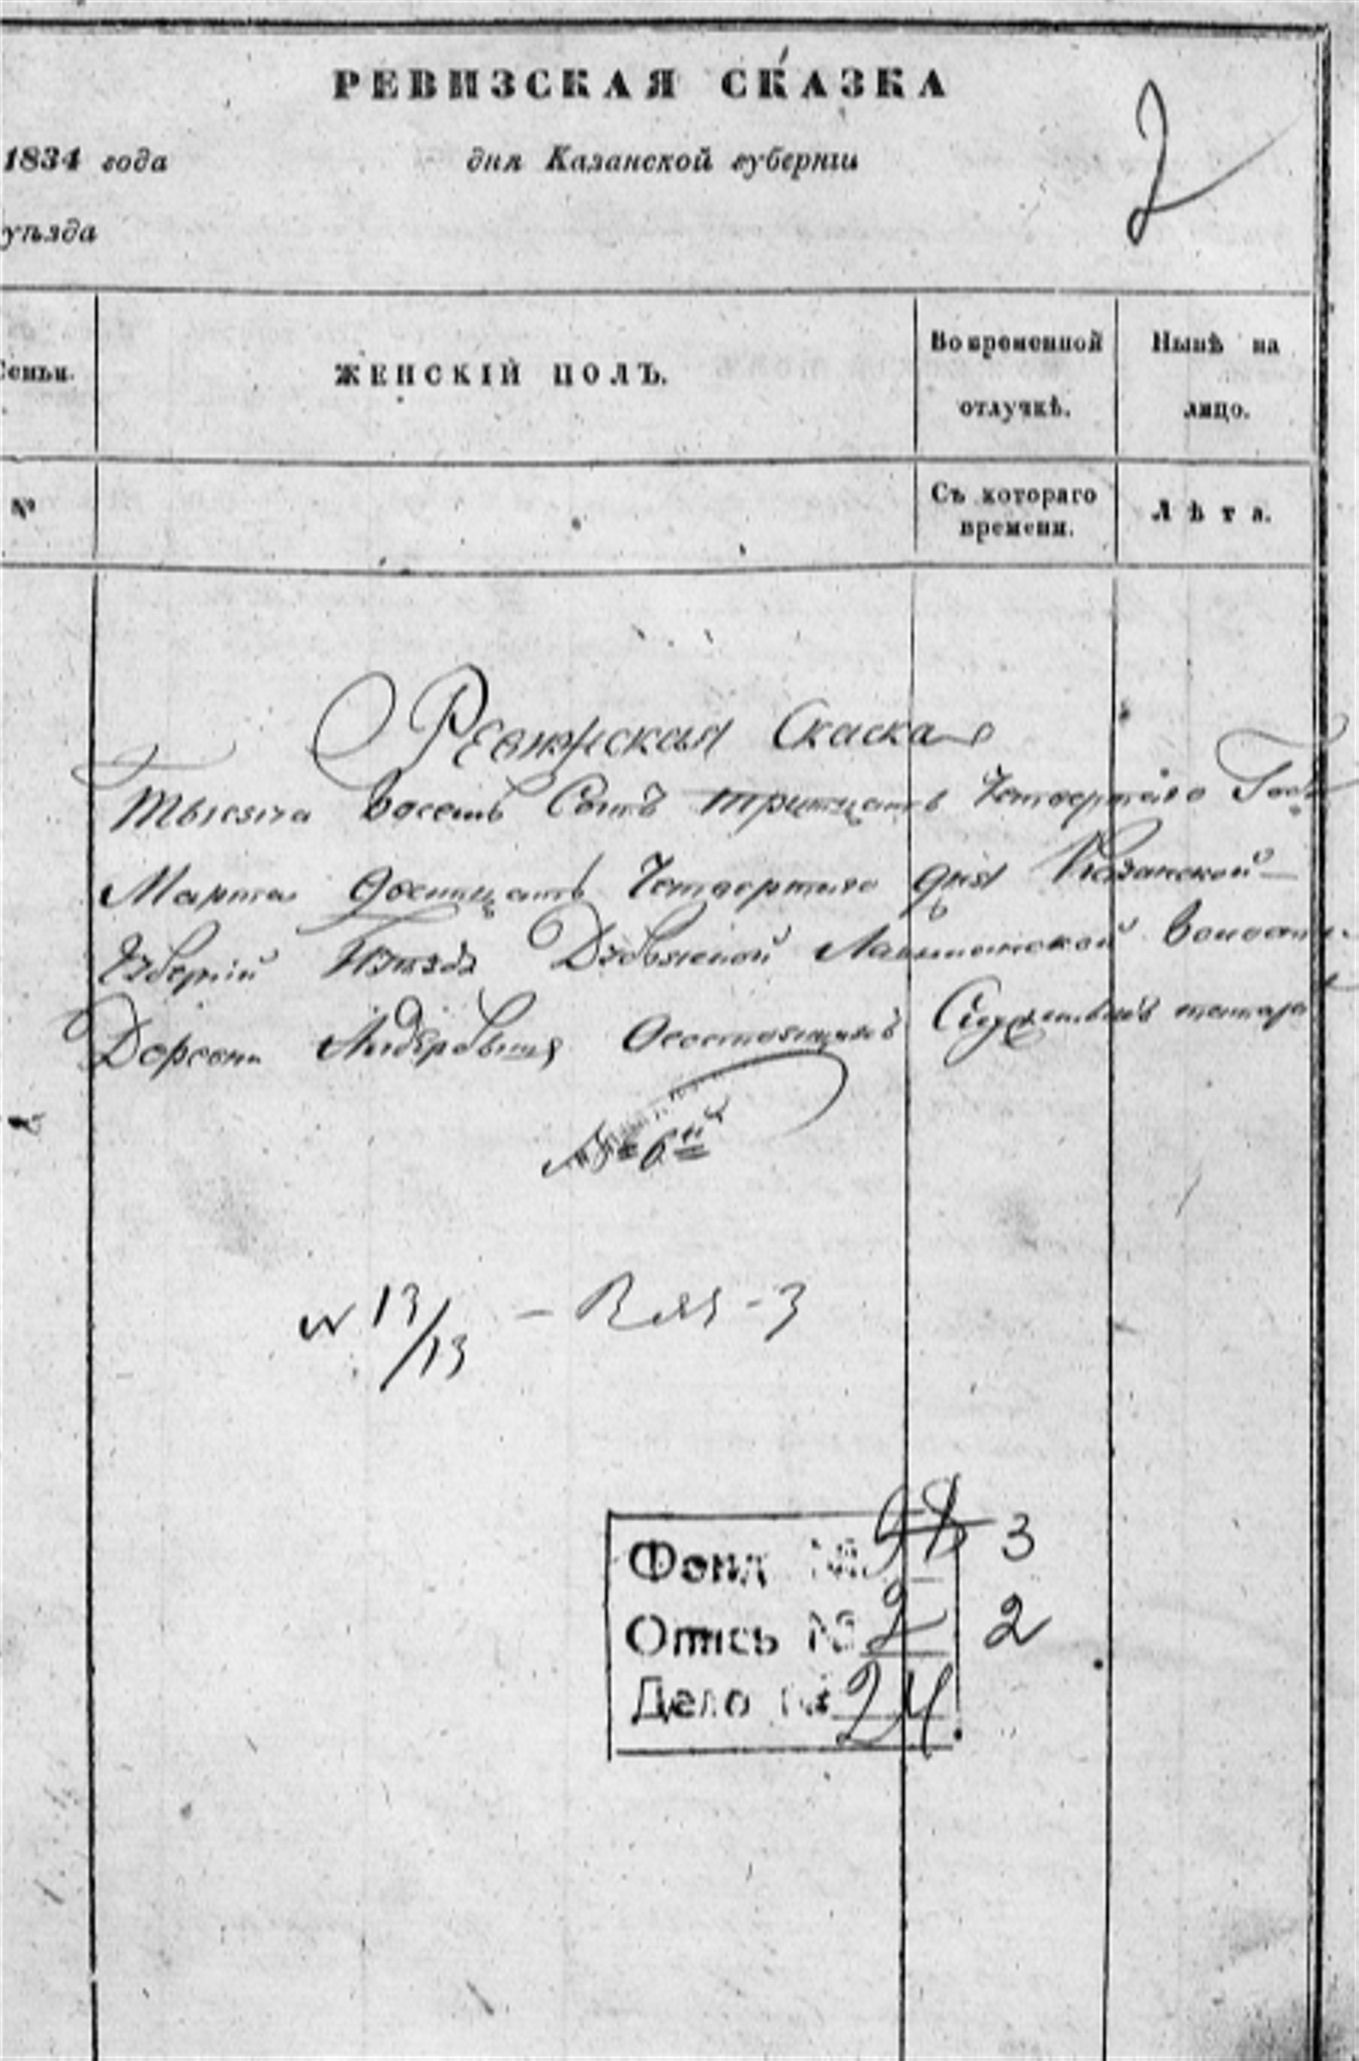 РЕВИЗСКАЯ СКАЗКА
2
1834 года дня Казанской губернiи
уѣзда
Семьи. ЖЕНСКІЙ ПОЛЪ. Во временной отлучкѣ. Нынѣ на лицо.
№ Съ котораго времени. Лѣта.
Ревижская Скаска
Тысяча Восемь Сотъ тритцать Четвертаго Года
Марта двенцать Четвертаго дня Казанской
Губерній Уѣзда Волости
Деревни татаръ
№ 6й
13/13 - 3
Фонд № 3
Опись № 2 2
Дело № 24.